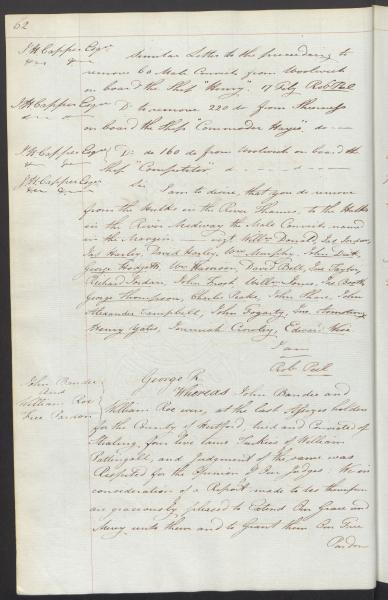 62
J H Capper Esqr
Similar Letter to the preceeding to
remove 60 Male Convicts from Woolwich
on board the Ship "Henry". 17 Feby Robt Peel
J H Capper Esqr
Do to remove 220 do from Sheerness
on board the Ship "Commodore Hayes", do
J H Capper Esqr
Do do 160 do from Woolwich on board the
Ship "Competitor" do
J H Capper Esqr
Sir
I am to desire, that you do remove
from the Hulks in the River Thames, to the Hulks
in the River Medway the Male Convicts named
in the Margin vizt Willm Donald, Jas Jordan,
Jas Hurley, David Hurley, Wm Murphy, John
George Hodgetts, Wm Harrison, David Bell, Jno Taylor,
Richard Jordan, John Frost, Willm Jones, Jas Booth
George Thompson, Charles Peake, John Shaw, John
Alexander Campbell, John Fogarty, Jno Armstrong
Henry Yates, Jeremiah Crowley, Edwin
I am
Robt Peel
John Bandee
and
William Roe
Free Pardon
George R.
Whereas John Bandee and
William Roe were, at the last Assizes holden
for the County of Hertford, tried and Convicted of
Stealing, four live tame Turkies of William
Pattingall, and Judgment of the same was
Respited for the Opinion of Our Judges: We in
consideration of a Report made to Us thereupon
are graciously pleased to Extend Our Grace and
Mercy unto them and to Grant them Our Free
Pardon